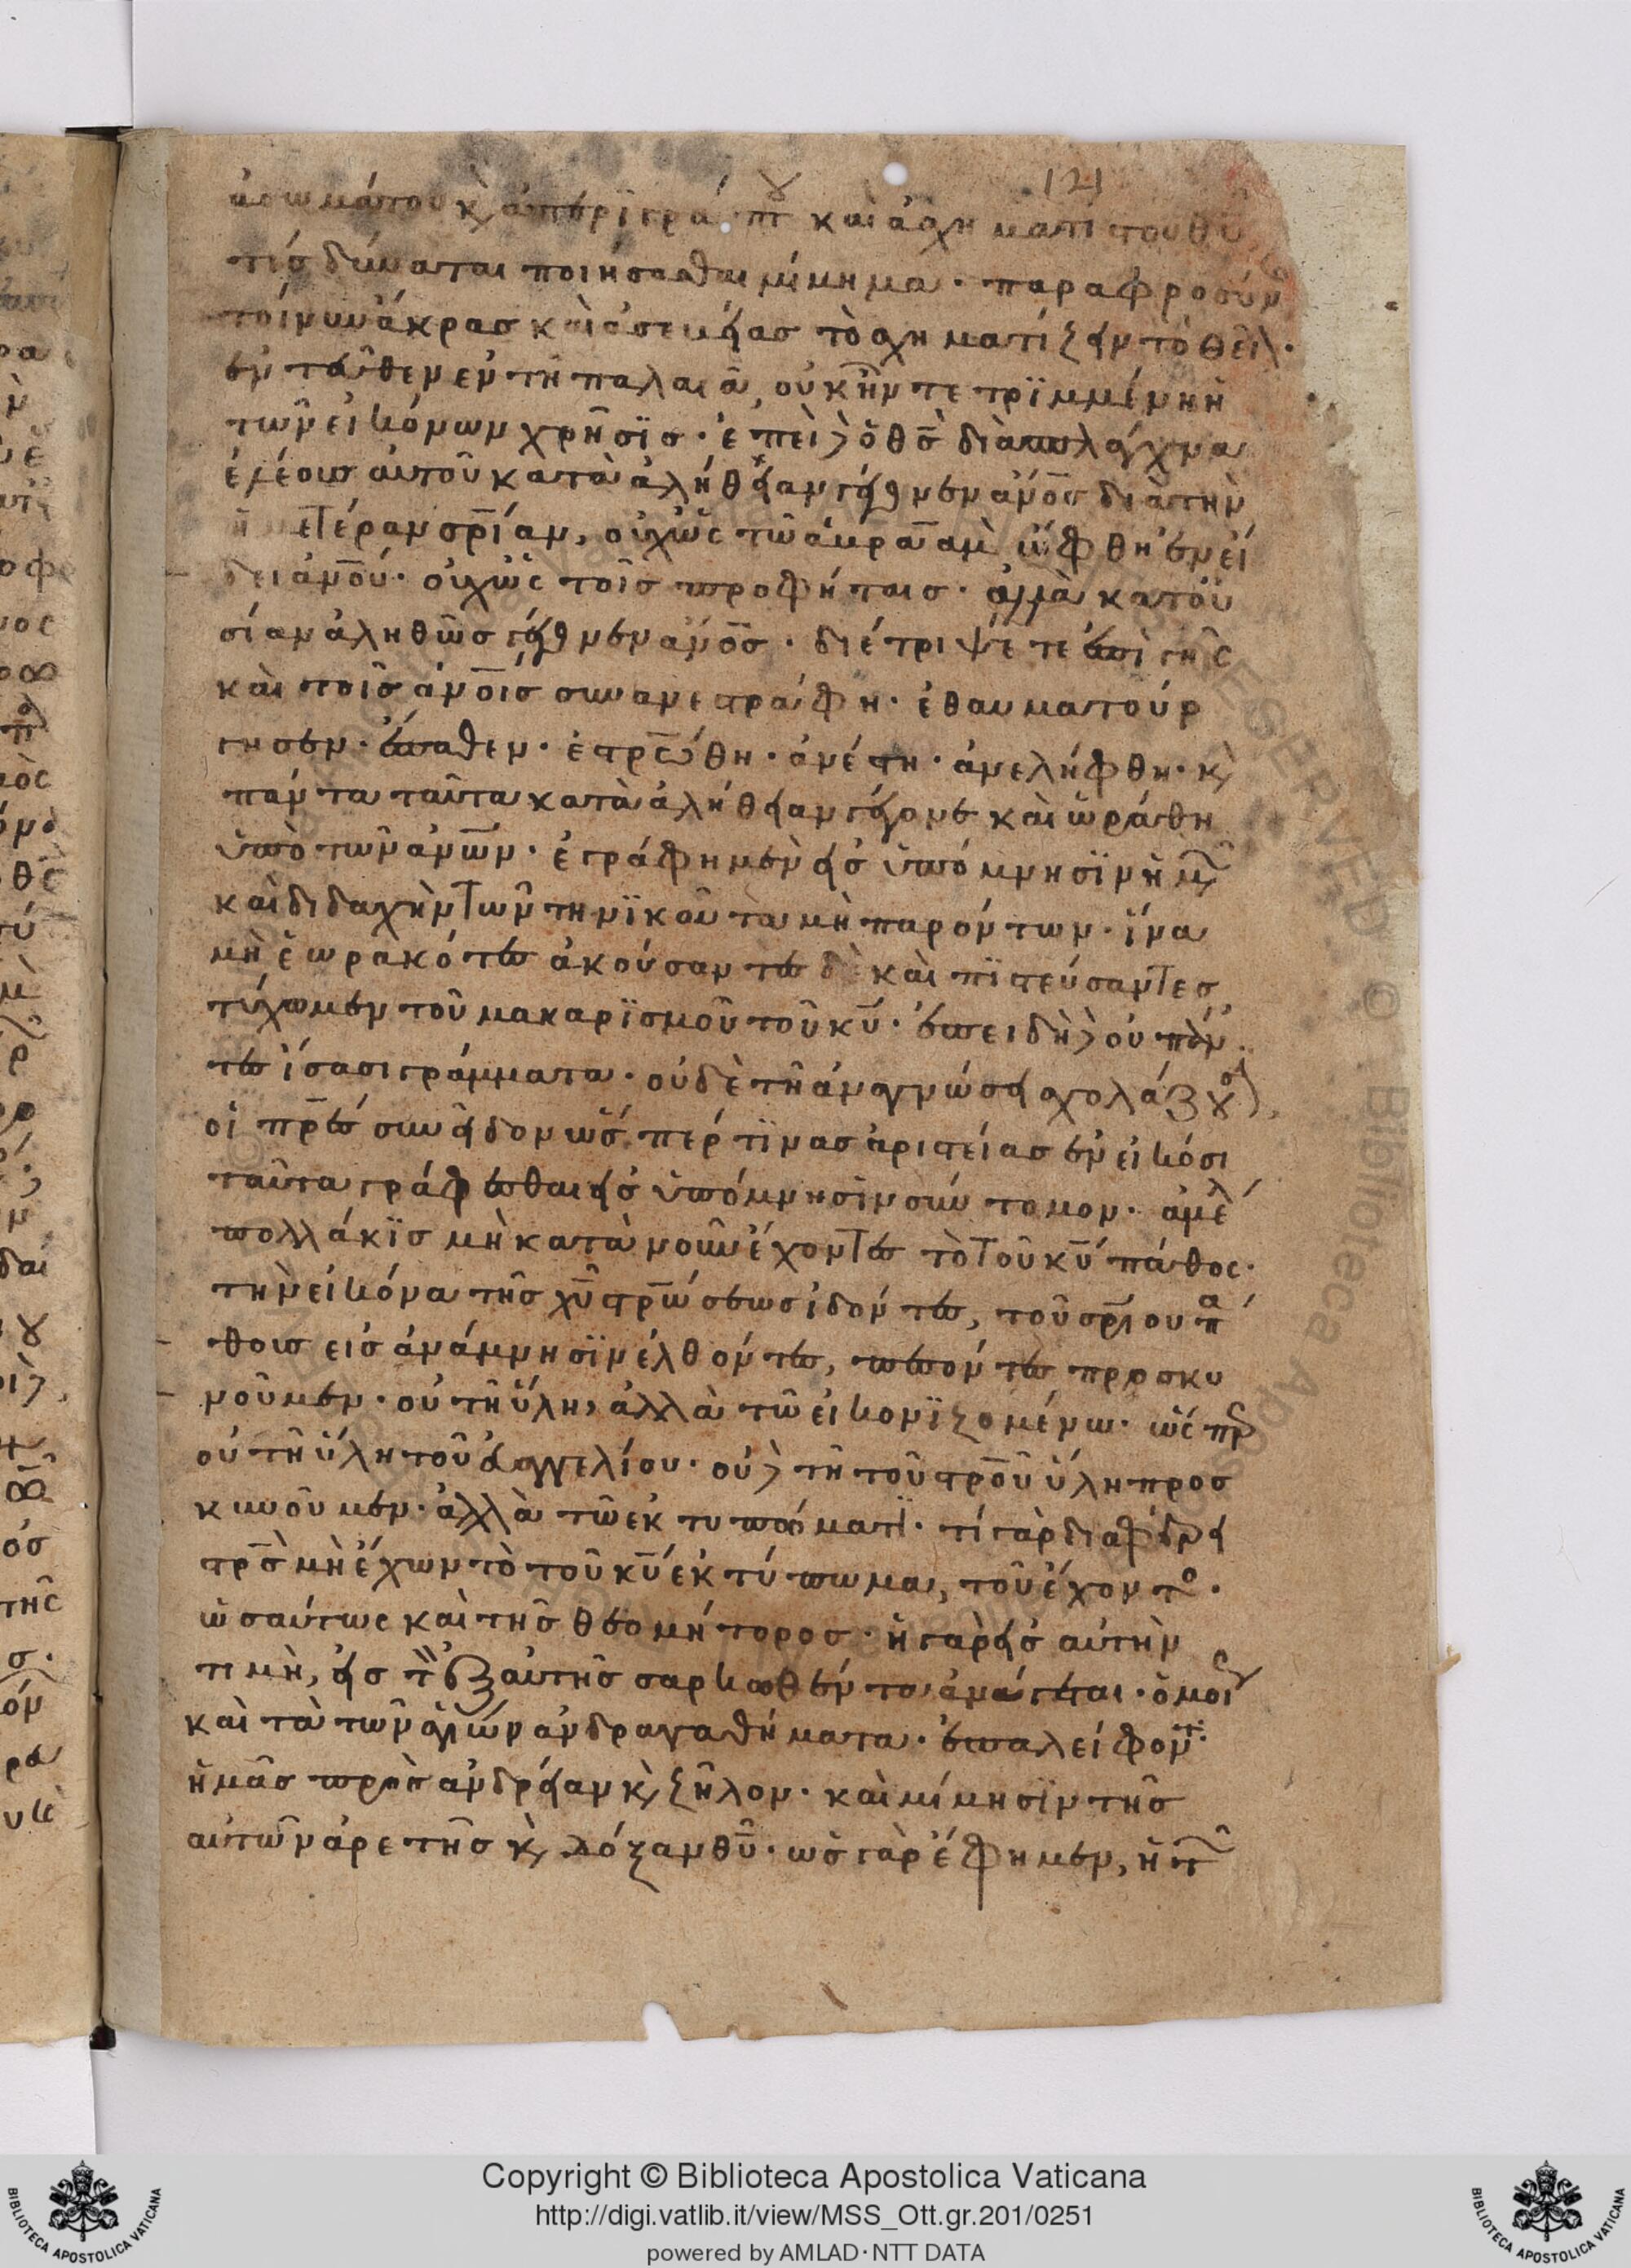 121
ἀσωμάτου κ ἀπεριγράπτου καὶ ἀσχηματίστου θυ
τίσ δύναται ποιήσασθαι μίμημα· παραφροσύν
τοίνυν ἄκρασ καὶ ἀσεβείασ τὸ σχηματίζειν τὸ θεῖ·
ἐντεῦθεν ἐν τῆ παλαιᾶ, οὐκ ἦν τετριμμένη ἡ
τῶν εἰκόνων χρῆσισ· ἐπεὶ δ ὁ θσ διὰ σπλάγχνα
ἐλέουσ αὐτοῦ κατὰ ἀλήθειαν γέγονεν ἄνοσ διὰ τὴν
ἡμετέραν σριαν, οὐχ ὡς τῶ ἀβρααμ ὤφθη ἐν εἴ
δει ἀνου· οὐχ ὡς τοῖσ προφήταισ· ἀλλὰ κατ οὐ
σίαν ἀληθῶσ γέγονεν ἄνοσ· διέτριψέ τε ἐπὶ γῆς
καὶ τοῖσ ἀνοισ συνανεστράφη· ἐθαυματούρ
γησεν· ἔπαθεν· ἐστρώθη· ἀνέστη· ἀνελήφθη· κ
πάντα ταῦτα κατὰ ἀλήθειαν γέγονε καὶ ὡράθη
ὑπὸ τῶν ἀνων· ἐγράφη μὲν εἰσ ὑπόμνησιν ἡμ
καὶ διδαχὴν τῶν τηνικαῦτα μὴ παρόντων· ἵνα
μὴ ἑωρακότεσ ἀκούσαντεσ δὲ καὶ πιστεύσαντεσ
τύχωμεν τοῦ μακαρισμοῦ τοῦ κυ· ἐπειδὴ δ οὐ πάν
τεσ ἴσασι γράμματα· οὐδὲ τῆ ἀναγνώσει σχολάζου
οἱ πρεσ συνεῖδον ὥσπερ τινὰσ ἀριστείασ ἐν εἰκόσι
ταῦτα γράφεσθαι εἰσ ὑπόμνησιν σύντομον· ἀμέλ
πολλάκισ μὴ κατὰ νοῦν ἔχοντεσ τὸ τοῦ κυ πάθος·
τὴν εἰκόνα τῆσ χυ στρώσεωσ ἰδόντεσ, τοῦ σριου πά
θουσ εἰσ ἀνάμνησιν ἐλθόντεσ, πεσόντεσ προσκυ
νοῦμεν· οὐ τῆ ὕλη, ἀλλὰ τῶ εἰκονιζομένω· ὥσπερ
οὐ τῆ ὕλη τοῦ εὐαγγελίου· οὐδ τῆ τοῦ στρου ὕλη προσ
κυνοῦμεν· ἀλλὰ τῶ ἐκτυπώματι· τί γὰρ διαφέρει
στρσ μὴ ἔχων τὸ τοῦ κυ ἐκτύπωμα, τοῦ ἔχοντο·
ὡσαύτως καὶ τῆσ θεομήτορος· ἡ γὰρ εἰσ αὐτὴν
τιμὴ, εἰσ τὸν ἐξ αὐτῆσ σαρκωθέντα ἀνάγεται· ὁμοί
καὶ τὰ τῶν ἁγίων ἀνδραγαθήματα· ἐπαλείφοντ
ἡμᾶσ πρὸσ ἀνδρείαν κ ζῆλον· καὶ μίμησιν τῆσ
αὐτῶν ἀρετῆσ κ δόξαν θυ· ὡσ γὰρ ἔφημεν, ἡ τ
Copyright © Biblioteca Apostolica Vaticana
http://digi.vatlib.it/view/MSS_Ott.gr.201/0251
powered by AMLAD·NTT DATA